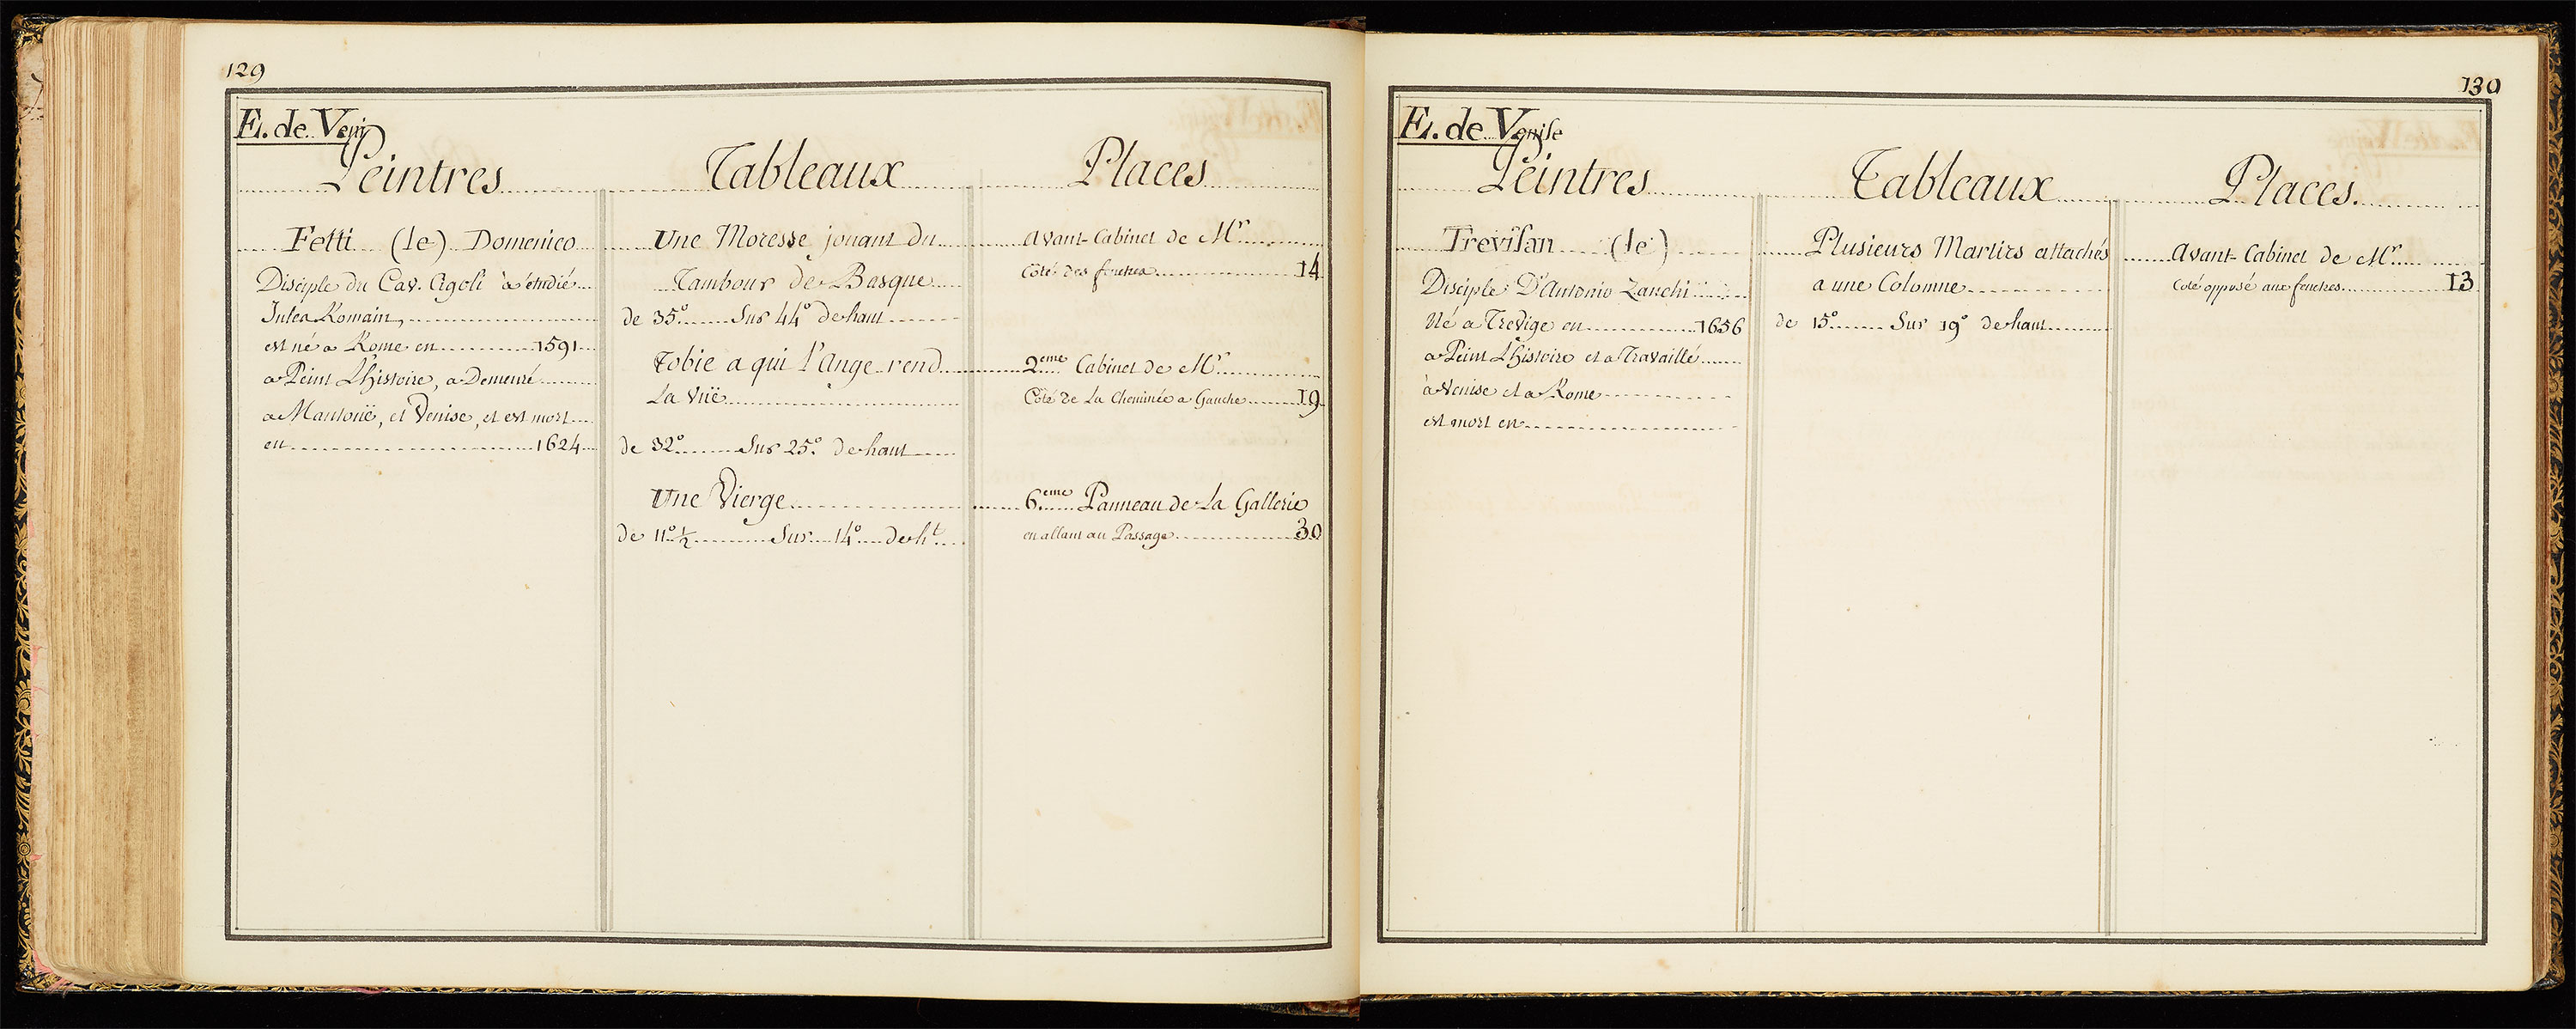 129
E. de Veni
Peintres
Tableaux
Places
Fetti (le) Domenico
Disciple du Cav. Cigoli à étudié
Jules Romain,
est né a Rome en 1591
a Peint L'histoire, a Demeuré
a Mantouë, et Venise, et est mort
en 1624
Une Moresse jouant du
Tambour de Basque
de 35° Sur 44° de haut
Tobie a qui l'Ange rend
La Vüe
de 32° Sur 25° de haut
Une Vierge
de 11° ½ Sur 14° de ht
Avant-Cabinet de Mr
Côté des fenetres 14
2eme Cabinet de Mr
Côté de La Cheminée a Gauche 19
6eme Panneau de La Gallerie
en allant au Passage 30
130
E. de Venise
Peintres
Tableaux
Places.
Trevisan (le)
Disciple D'Antonio Zanchi
Né a Trevige en 1656
a Peint L'histoire et a Travaillé
à Venise et a Rome
est mort en
Plusieurs Martirs attachés
a une Colomne
de 15° Sur 19° de haut
Avant-Cabinet de Mr
Coté opposé aux fenetres 13